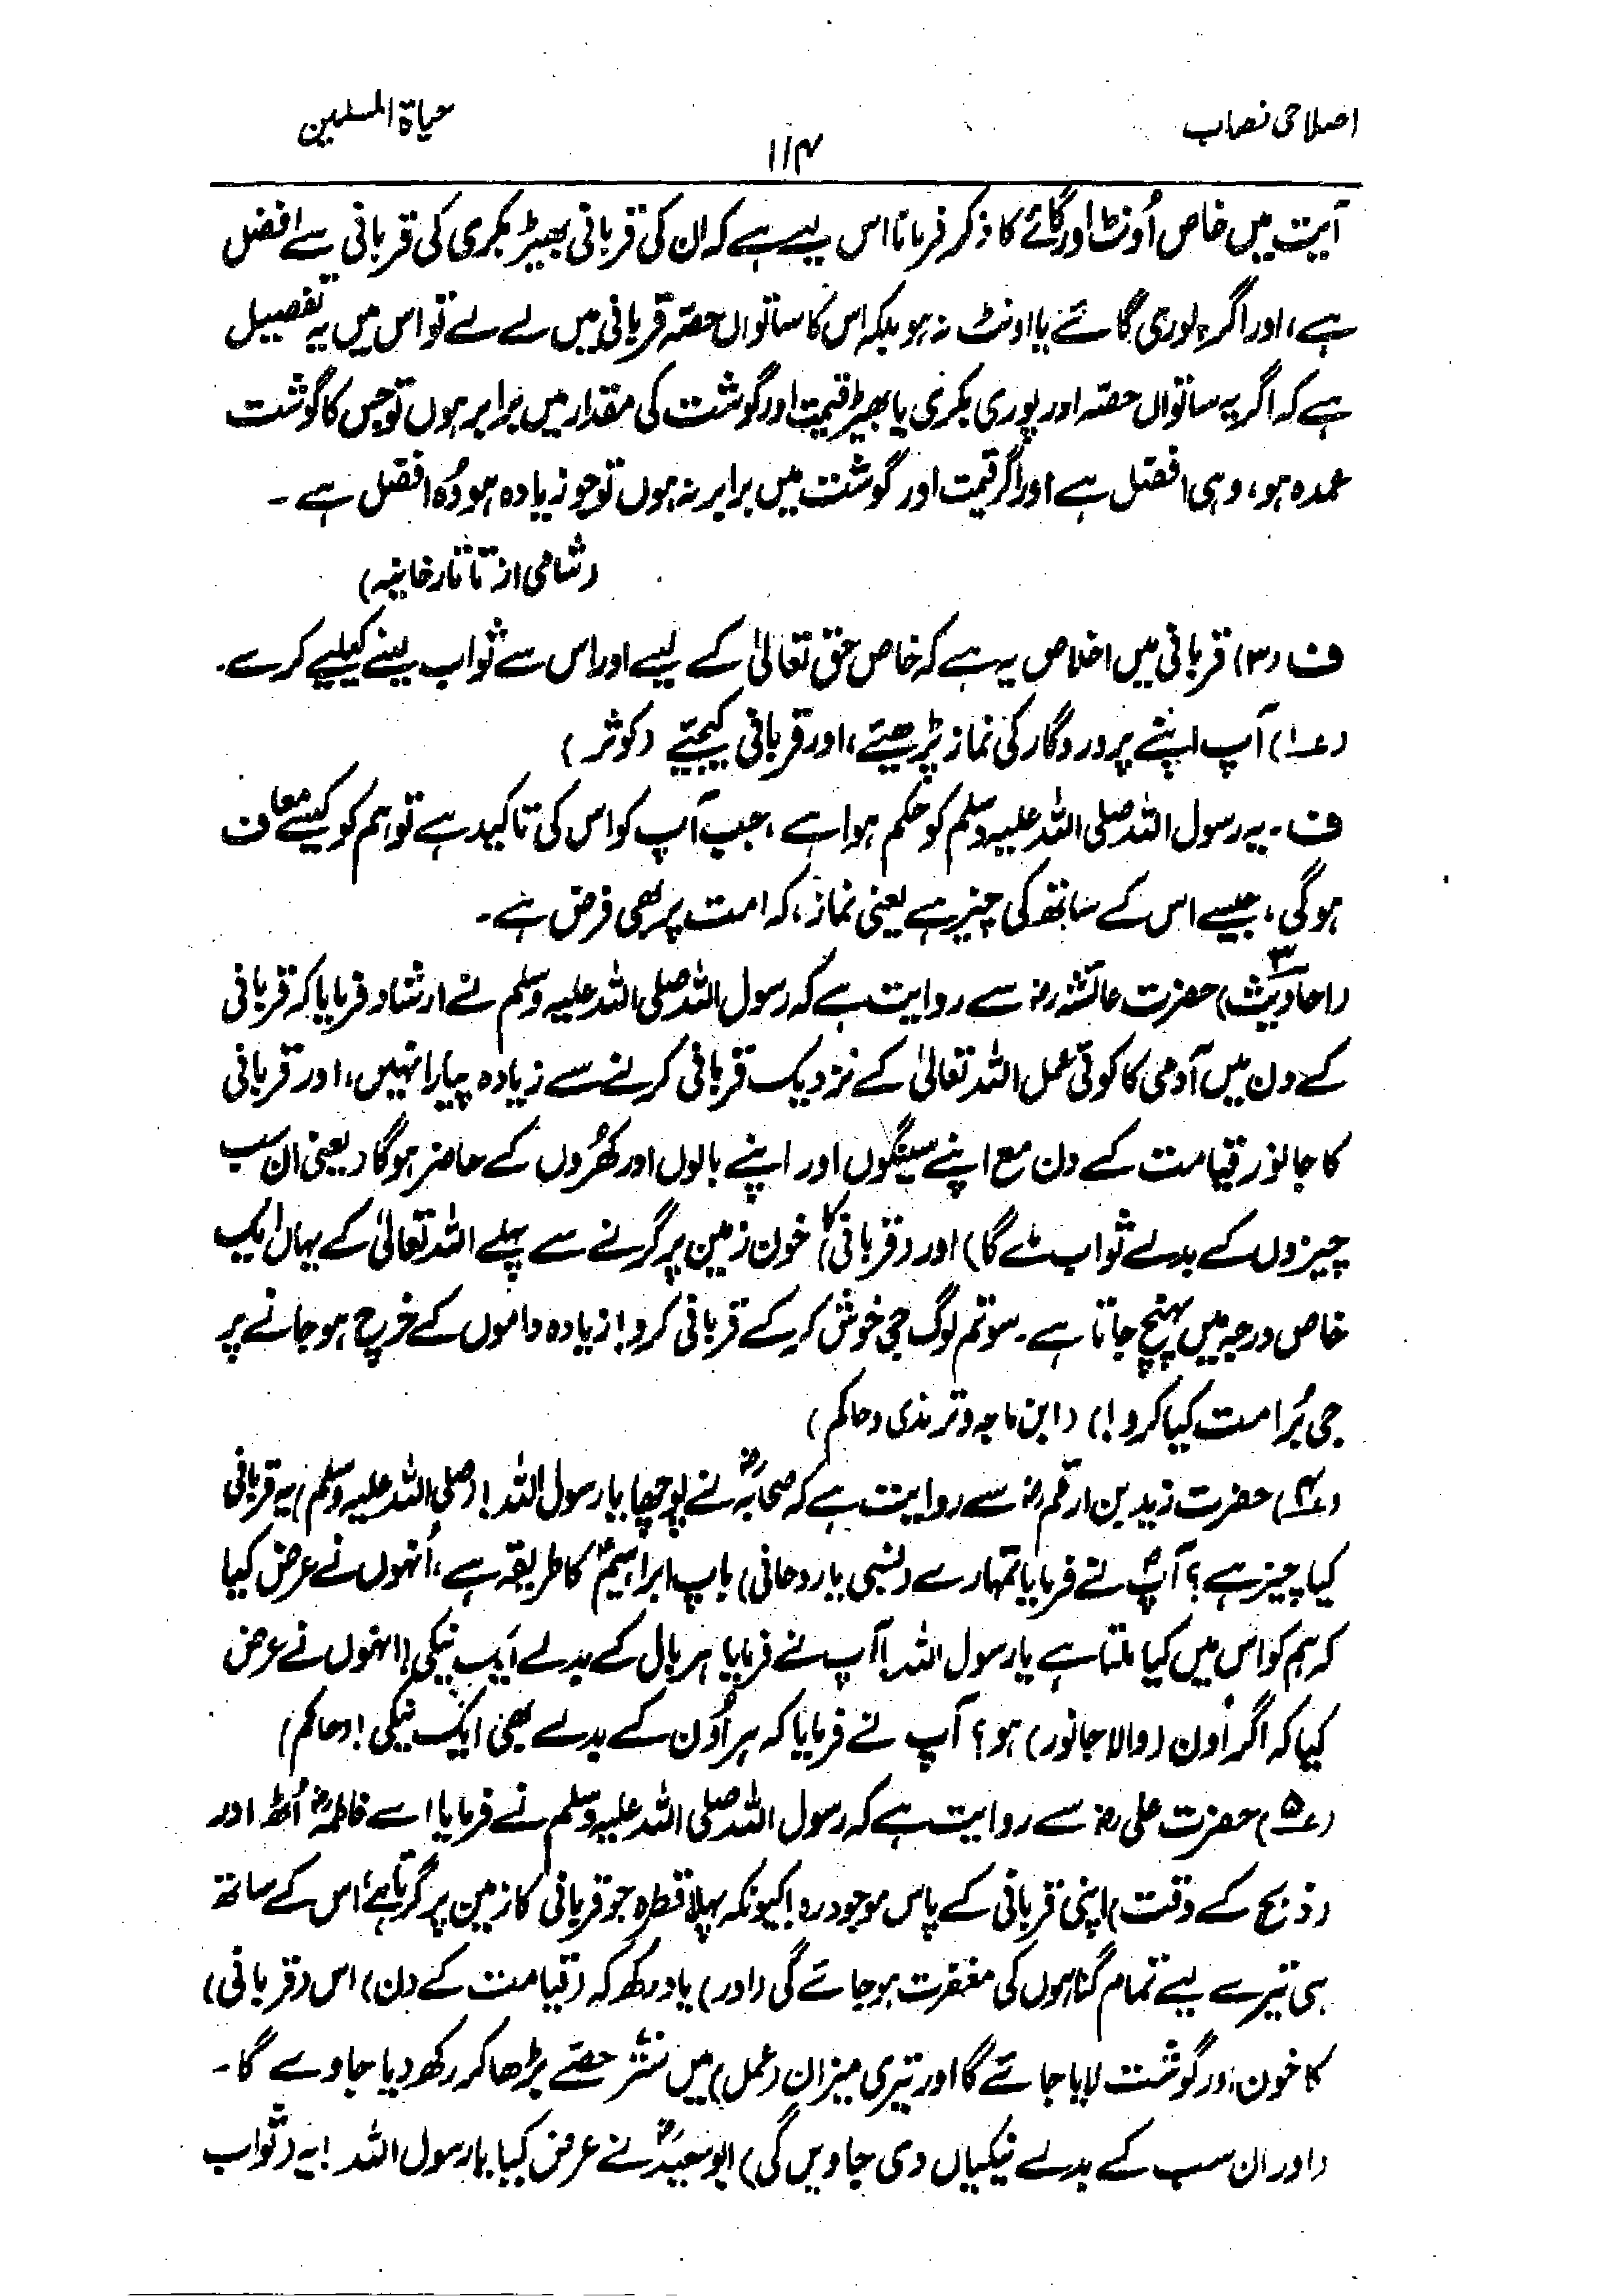 اصلاحی نصاب
۱۱۴
حیاۃ المسلمین
آیت میں خاص اُونٹ اور گائے کا ذکر فرمانا اس لیے ہے کہ ان کی قربانی بھیڑ بکری کی قربانی سے افضل
ہے، اور اگر پوری گائے یا اونٹ نہ ہو بلکہ اس کا ساتواں حصّہ قربانی میں لے لے تو اس میں یہ تفصیل
ہے کہ اگر یہ ساتواں حصّہ اور پوری بکری یا بھیڑ قیمت اور گوشت کی مقدار میں برابر ہوں تو جس کا گوشت
عمدہ ہو، وہی افضل ہے اور اگر قیمت اور گوشت میں برابر نہ ہوں تو جو زیادہ ہو وُہ افضل ہے ۔
(شامی از تاتارخانیہ)
ف (۳) قربانی میں اخلاص یہ ہے کہ خاص حق تعالیٰ کے لیے اور اس سے ثواب لینے کیلیے کرے.
(ع۱) آپ اپنے پروردگار کی نماز پڑھیئے، اور قربانی کیجئیے (کوثر)
ف ۔ یہ رسول اللہ صلی اللہ علیہ وسلم کو حکم ہوا ہے، جب آپ کو اس کی تاکید ہے تو ہم کو کیسے معاف
ہوگی، جیسے اس کے ساتھ کی چیز ہے یعنی نماز، کہ امت پر بھی فرض ہے ۔
(احادیث) ۳ حضرت عائشہ رضؓ سے روایت ہے کہ رسول اللہ صلی اللہ علیہ وسلم نے ارشاد فرمایا کہ قربانی
کے دن میں آدمی کا کوئی عمل اللہ تعالیٰ کے نزدیک قربانی کرنے سے زیادہ پیارا نہیں، اور قربانی
کا جانور قیامت کے دن مع اپنے سینگوں اور اپنے بالوں اور کھُروں کے حاضر ہوگا (یعنی ان سب
چیزوں کے بدلے ثواب ملے گا) اور (قربانی کا) خون زمین پر گرنے سے پہلے اللہ تعالیٰ کے یہاں ایک
خاص درجہ میں پہنچ جاتا ہے ۔ سو تم لوگ جی خوش کر کے قربانی کرو! زیادہ داموں کے خرچ ہو جانے پر
جی بُرا مت کیا کرو!) (ابن ماجہ و ترمذی و حاکم)
(ع۴) حضرت زید بن ارقم رضؓ سے روایت ہے کہ صحابہؓ نے پوچھا یا رسول اللہ! (صلی اللہ علیہ وسلم) یہ قربانی
کیا چیز ہے؟ آپؐ نے فرمایا تمہارے (نسبی یا روحانی) باپ ابراہیمؑ کا طریقہ ہے، اُنہوں نے عرض کیا
کہ ہم کو اس میں کیا ملتا ہے یا رسول اللہ! آپ نے فرمایا ہر بال کے بدلے ایک نیکی! انہوں نے عرض
کیا کہ اگر اُون (والا جانور) ہو؟ آپ نے فرمایا کہ ہر اُون کے بدلے بھی ایک نیکی! (حاکم)
(ع۵) حضرت علی رضؓ سے روایت ہے کہ رسول اللہ صلی اللہ علیہ وسلم نے فرمایا اے فاطمہؓ اُٹھ اور
(ذبح کے وقت) اپنی قربانی کے پاس موجود رہ! کیونکہ پہلا قطرہ جو قربانی کا زمین پر گرتا ہے، اس کے ساتھ
ہی تیرے لیے تمام گناہوں کی مغفرت ہو جائے گی (اور) یاد رکھ کہ (قیامت کے دن) اس (قربانی)
کا خون اور گوشت لایا جائے گا اور تیری میزان (عمل) میں ستّر حصّے بڑھا کر رکھ دیا جاوے گا ۔
(اور ان سب کے بدلے نیکیاں دی جاویں گی) ابو سعیدؓ نے عرض کیا یا رسول اللہ! یہ (ثواب